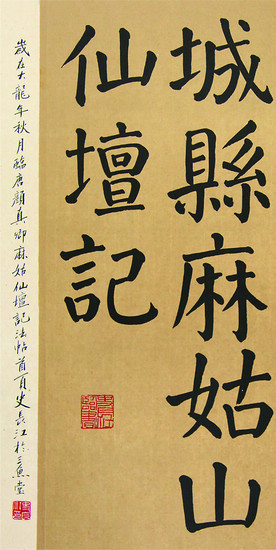 城縣麻姑山
仙壇記
歲在大龍年秋月臨唐顏真卿麻姑仙壇記法帖首頁史長江於三魚堂